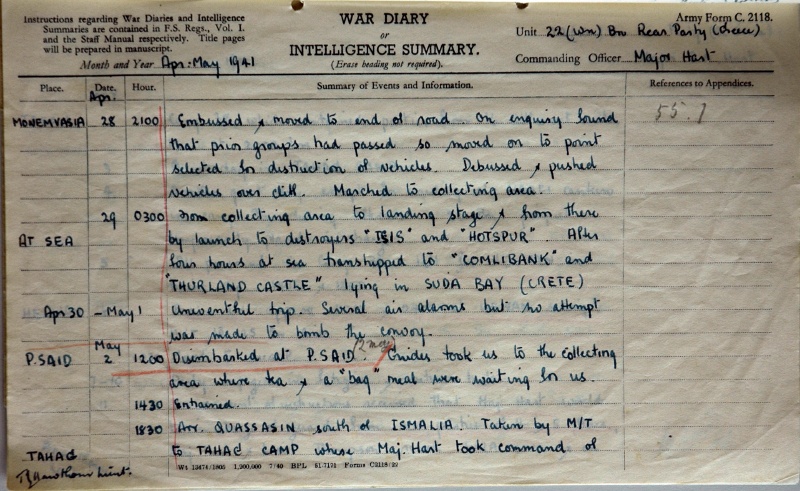 Instructions regarding War Diaries and Intelligence
Summaries are contained in F.S. Regs., Vol. I.
and the Staff Manual respectively. Title pages
will be prepared in manuscript.
Month and Year Apr-May 1941
WAR DIARY
or
INTELLIGENCE SUMMARY.
(Erase heading not required).
Army Form C. 2118.
Unit 22 (Wn) Bn Rear Party (Greece)
Commanding Officer Major Hart
Place. Date. Hour. Summary of Events and Information. References to Appendices.
Apr.
MONEMVASIA 28 2100 Embussed & moved to end of road. On enquiry found 55.1
that prior groups had passed so moved on to point
selected for distruction of vehicles. Debussed & pushed
vehicles over cliff. Marched to collecting area.
29 0300 From collecting area to landing stage & from there
AT SEA by launch to destroyers "ISIS" and "HOTSPUR" After
four hours at sea transhipped to "COMLIBANK" and
"THURLAND CASTLE" lying in SUDA BAY (CRETE)
Apr 30 - May 1 Uneventful trip. Several air alarms but no attempt
was made to bomb the convoy.
P.SAID May 2 1200 Disembarked at P.SAID 2 May. Guides took us to the collecting
area where tea & a "bag" meal were waiting for us.
1430 Entrained.
1830 Arr. QUASSASIN south of ISMALIA. Taken by M/T
TAHAG to TAHAG CAMP where Maj. Hart took command of
Lieut.
Wt 13474/1805 1,200,000 7/40 BPL 51-7171 Forms C2118/22